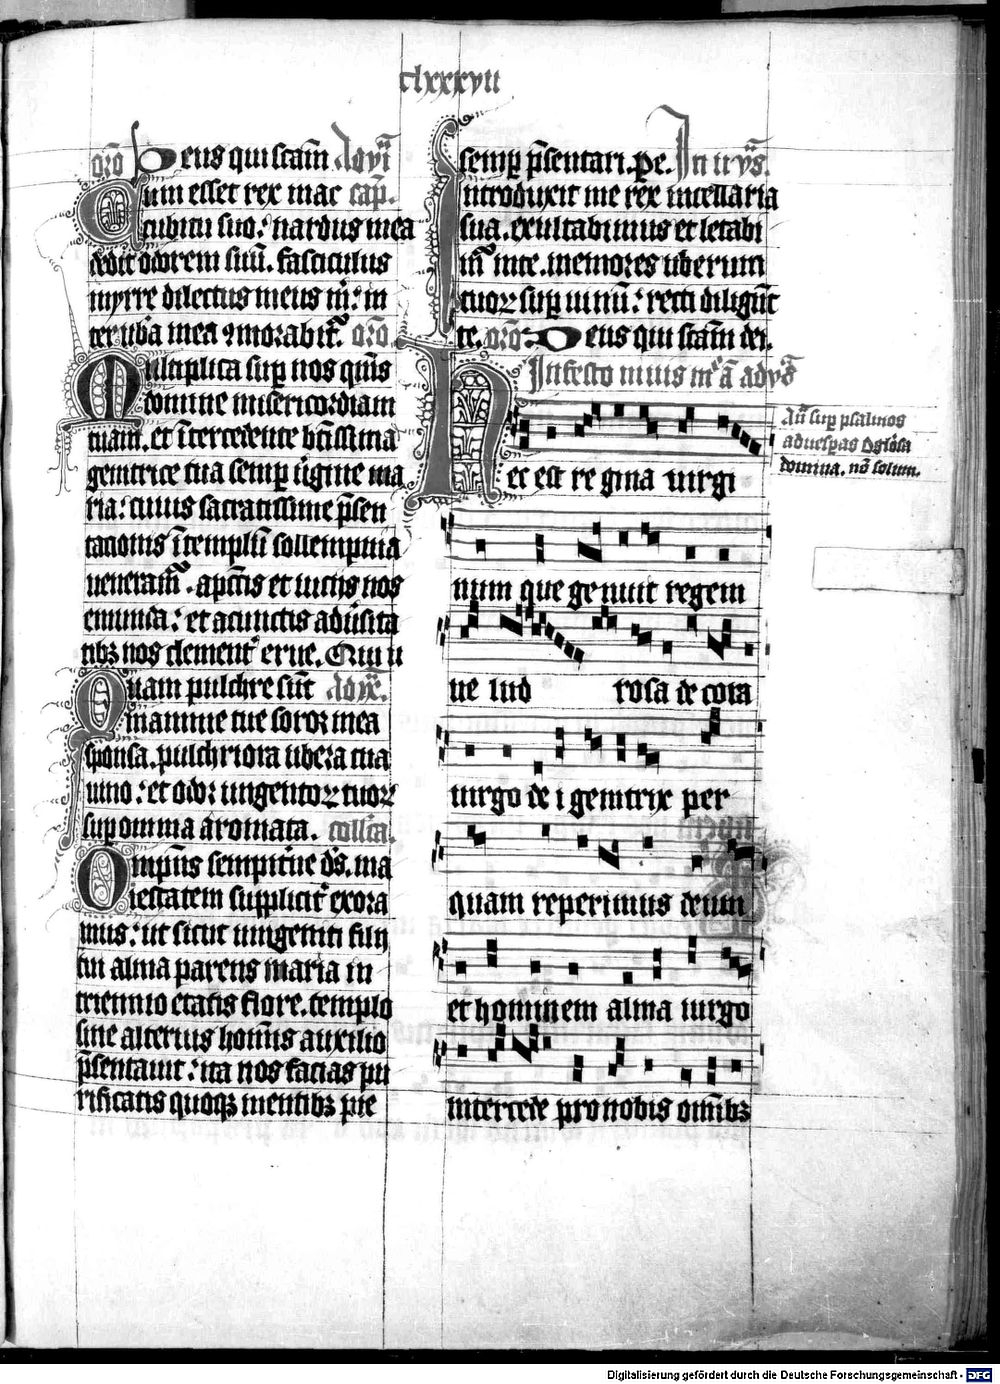 clxxxvii
oro Deus qui scam Ad vi
Cum esset rex in ac cap.
cubitu suo: nardus mea
dedit odorem suu. fasciculus
myrre dilectus meus m: in
ter ub̾a mea ꝯmorabit̾. oro
Multiplica sup nos qms
domine misericordiam
tuam. et ītercedente btissima
genitrice tua semp v̾gine ma
ria: cuius sacratissime p̄sen
tacionis ī templū sollempnia
ueneram̾. a p̄ctis et uiciis nos
emunda: et a cunctis adv̾sita
tibꝫ nos clement̾ erue. Qui u
Quam pulchre sūt Ad ix.
mamme tue soror mea
sponsa. pulchriora ubera tua
uino: et odor ungentoꝝ tuoꝝ
sup omnia aromata. collēa.
Omp̄ns sempit̾ne ds. ma
iestatem supplicit̾ exora
mus: ut sicut unigeniti filii
tui alma parens maria in
triennio etatis flore. templo
sine alterius homīs auxilio
p̄sentauit: ita nos facias pu
rificatis quoqꝫ mentibꝫ pie
semp p̄sentari. pe. In ii vs̾.
Introduxit me rex in cellaria
sua. exultabimus et letabi
m̾ in te. memores uberum
tuoꝝ sup uinū: recti diligūt
te. oro Deus qui scam dei.
In festo niuis m̾e a ad vs̾
Hec est regina uirgi
num que genuit regem
ue lud rosa de cora
uirgo de i genitrix per
quam reperimus deum
et hominem alma uirgo
intercede pro nobis omībꝫ
An̄ sup psalmos
ad uesp̄as O gl̄osa
domina. nō solum.
Digitalisierung gefördert durch die Deutsche Forschungsgemeinschaft - DFG